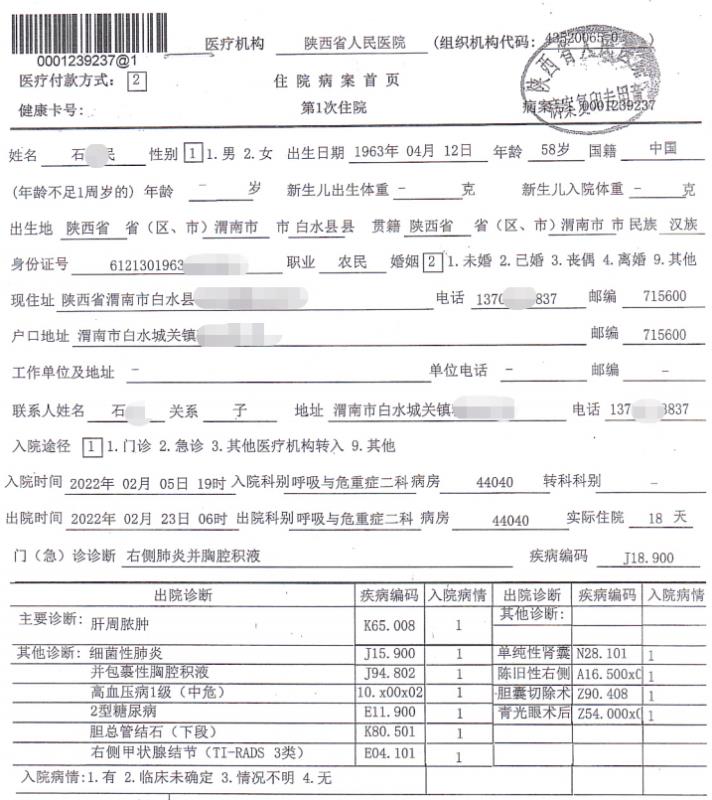 0001239237@1
医疗机构 陕西省人民医院 (组织机构代码: 43520065-0 )
医疗付款方式: 2 住院病案首页
健康卡号: 第1次住院 病案 0001239237
陕西省人民医
病案复印专用章
姓名 石 民 性别 1 1. 男 2. 女 出生日期 1963年 04月 12日 年龄 58岁 国籍 中国
(年龄不足1周岁的) 年龄 - 岁 新生儿出生体重 - 克 新生儿入院体重 - 克
出生地 陕西省 省(区、市)渭南市 市 白水县县 贯籍 陕西省 省(区、市)渭南市 市 民族 汉族
身份证号 6121301963 职业 农民 婚姻 2 1. 未婚 2. 已婚 3. 丧偶 4. 离婚 9. 其他
现住址 陕西省渭南市白水县 电话 1370 837 邮编 715600
户口地址 渭南市白水城关镇 邮编 715600
工作单位及地址 - 单位电话 - 邮编 -
联系人姓名 石 关系 子 地址 渭南市白水城关镇 电话 137 3837
入院途径 1 1. 门诊 2. 急诊 3. 其他医疗机构转入 9. 其他
入院时间 2022年 02月 05日 19时 入院科别 呼吸与危重症二科 病房 44040 转科科别 -
出院时间 2022年 02月 23日 06时 出院科别 呼吸与危重症二科 病房 44040 实际住院 18 天
门(急)诊诊断 右侧肺炎并胸腔积液 疾病编码 J18.900
出院诊断 疾病编码 入院病情 出院诊断 疾病编码 入院病情
主要诊断: 肝周脓肿 K65.008 1 其他诊断:
其他诊断: 细菌性肺炎 J15.900 1 单纯性肾囊 N28.101 1
并包裹性胸腔积液 J94.802 1 陈旧性右侧 A16.500x0 1
高血压病1级(中危) 10.x00x02 1 胆囊切除术 Z90.408 1
2型糖尿病 E11.900 1 青光眼术后 Z54.000x0 1
胆总管结石(下段) K80.501 1
右侧甲状腺结节(TI-RADS 3类) E04.101 1
入院病情:1. 有 2. 临床未确定 3. 情况不明 4. 无